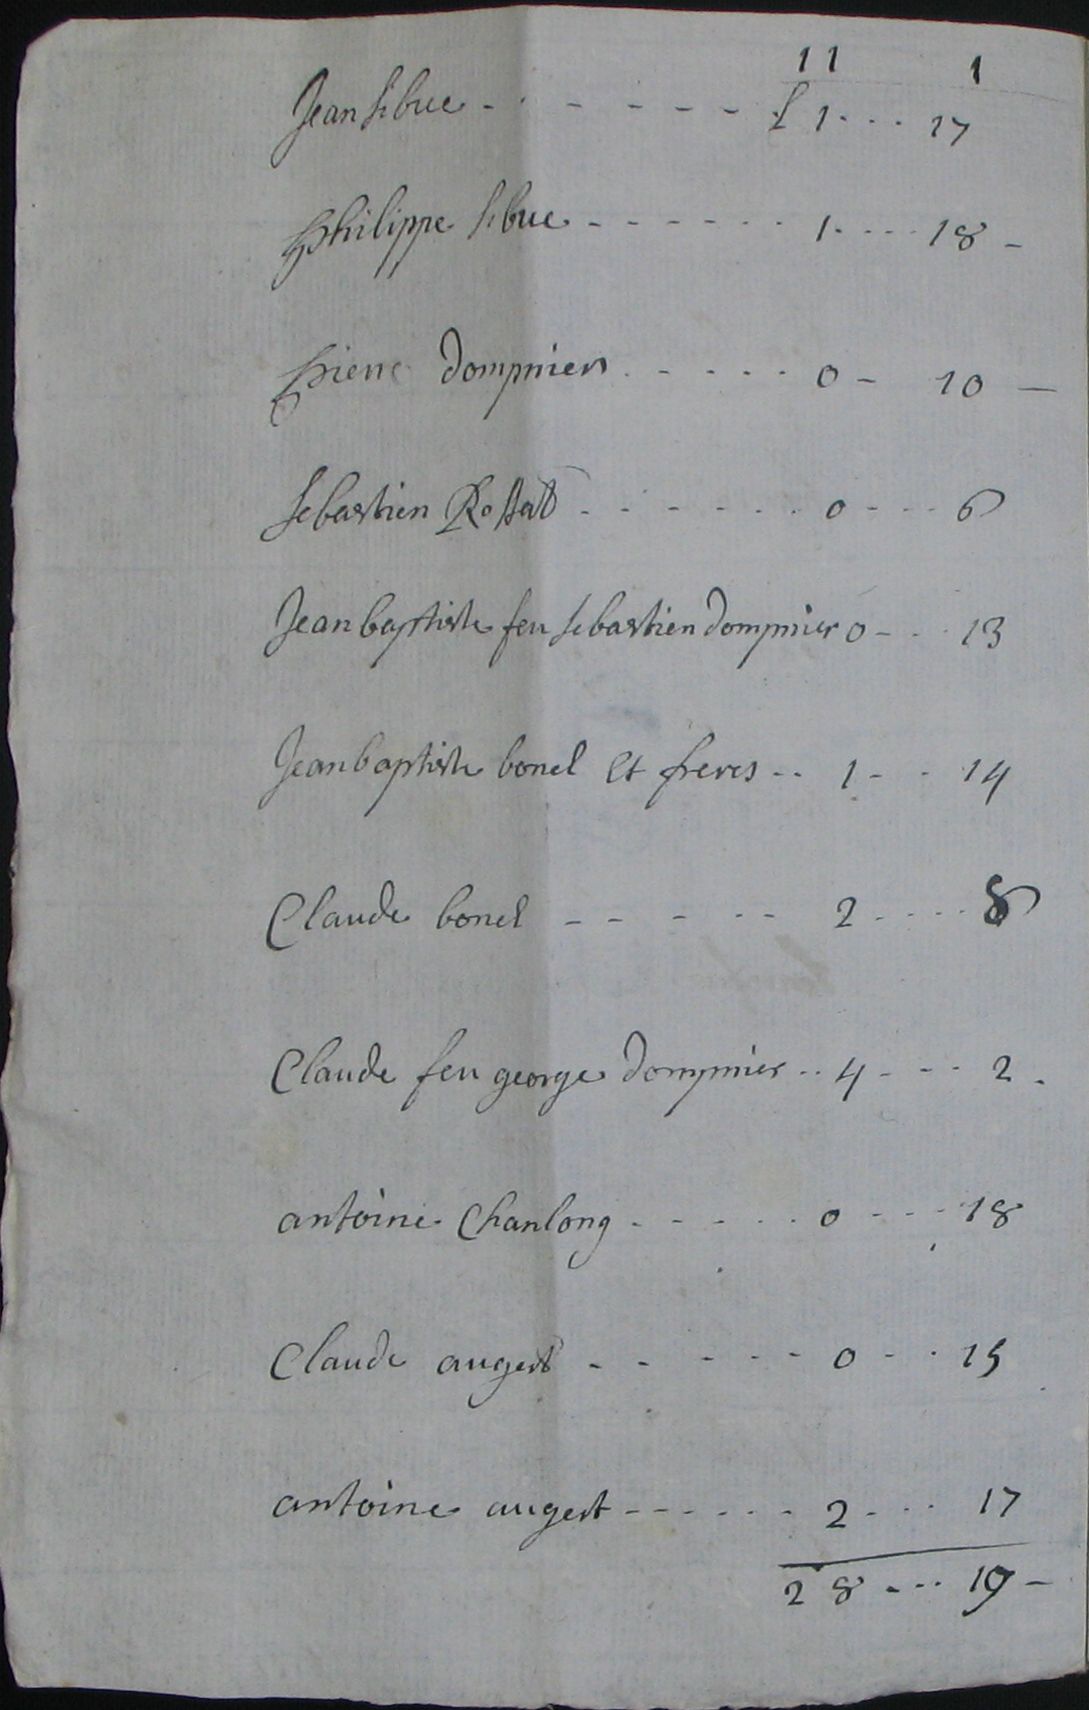 11 1
Jean sibue - - - - - - £ 1 - - - 17
Philippe sibue - - - - - - 1 - - - - 18 -
Pierre dompnier - - - - - 0 - 10 -
sebastien Rostat - - - - - - 0 - - - 6
Jean baptiste feu sebastien dompnier 0 - - 13
Jean baptiste bonel et freres - - 1 - - 14
Claude bonel - - - - - 2 - - - - 8
Claude feu george dompnier - - 4 - - - 2 -
antoine Chanlong - - - - - 0 - - - 18
Claude augert - - - - - 0 - - 15
antoine augert - - - - - - 2 - - - 17
28 - - - 19 -